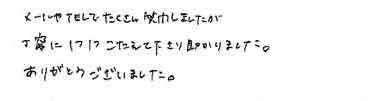 メールやTELでたくさん質問しましたが
丁寧に1つ1つこたえて下さり助かりました。
ありがとうございました。